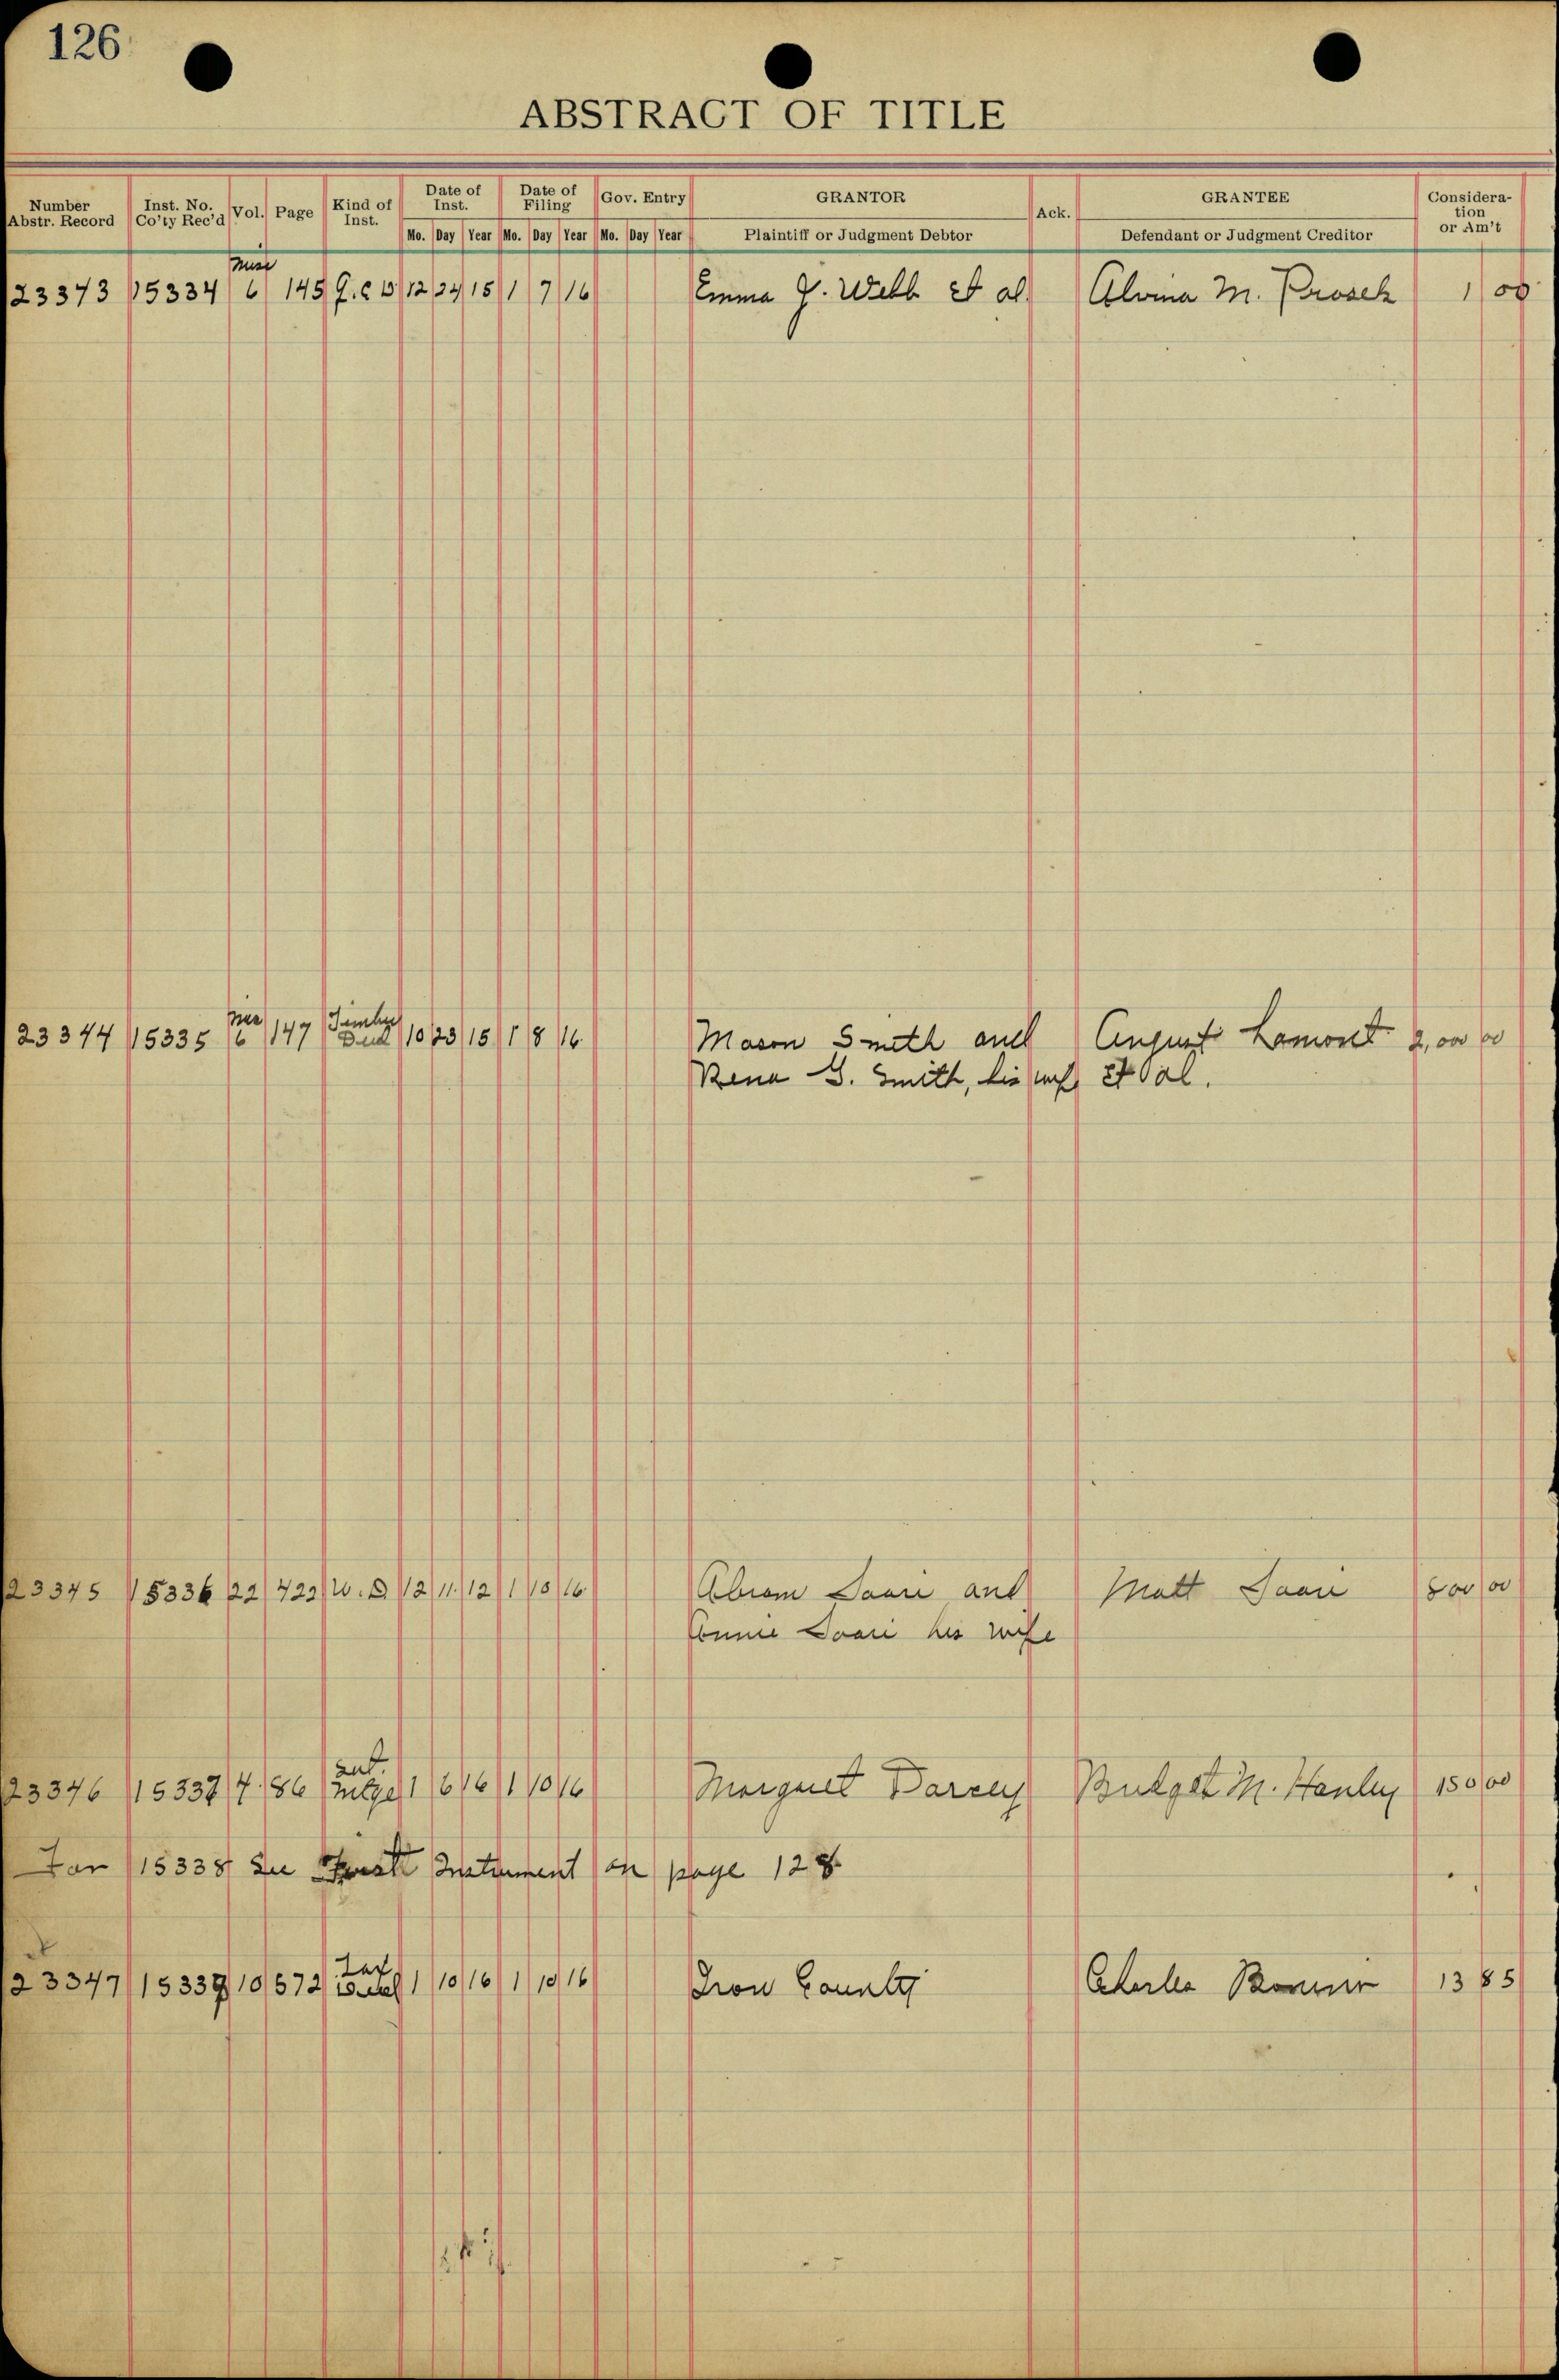 126
ABSTRACT OF TITLE
Number Abstr. Record Inst. No. Co'ty Rec'd Vol. Page Kind of Inst. Date of Inst. Date of Filing Gov. Entry GRANTOR Ack. GRANTEE Consideration or Am't
Mo. Day Year Mo. Day Year Mo. Day Year Plaintiff or Judgment Debtor Defendant or Judgment Creditor
Misc
23343 15334 6 145 Q.C.D 12 24 15 1 7 16 Emma J. Webb et al Alvina M. Prosch 1 00
Misc Timber
23344 15335 6 147 Deed 10 23 15 1 8 16 Mason Smith and August Lamont 2,000 00
Rena G. Smith, his wife et al.
23345 15336 22 422 W.D. 12 11 12 1 10 16 Abram Saari and Matt Saari 800 00
Annie Saari his wife
23346 15337 4 86 Mtge 1 6 16 1 10 16 Margaret Darcey Bridget M. Hanley 150 00
For 15338 see First Instrument on page 128
Tax
23347 15339 10 572 Deed 1 10 16 1 10 16 Iron County Charles Bonner 13 85